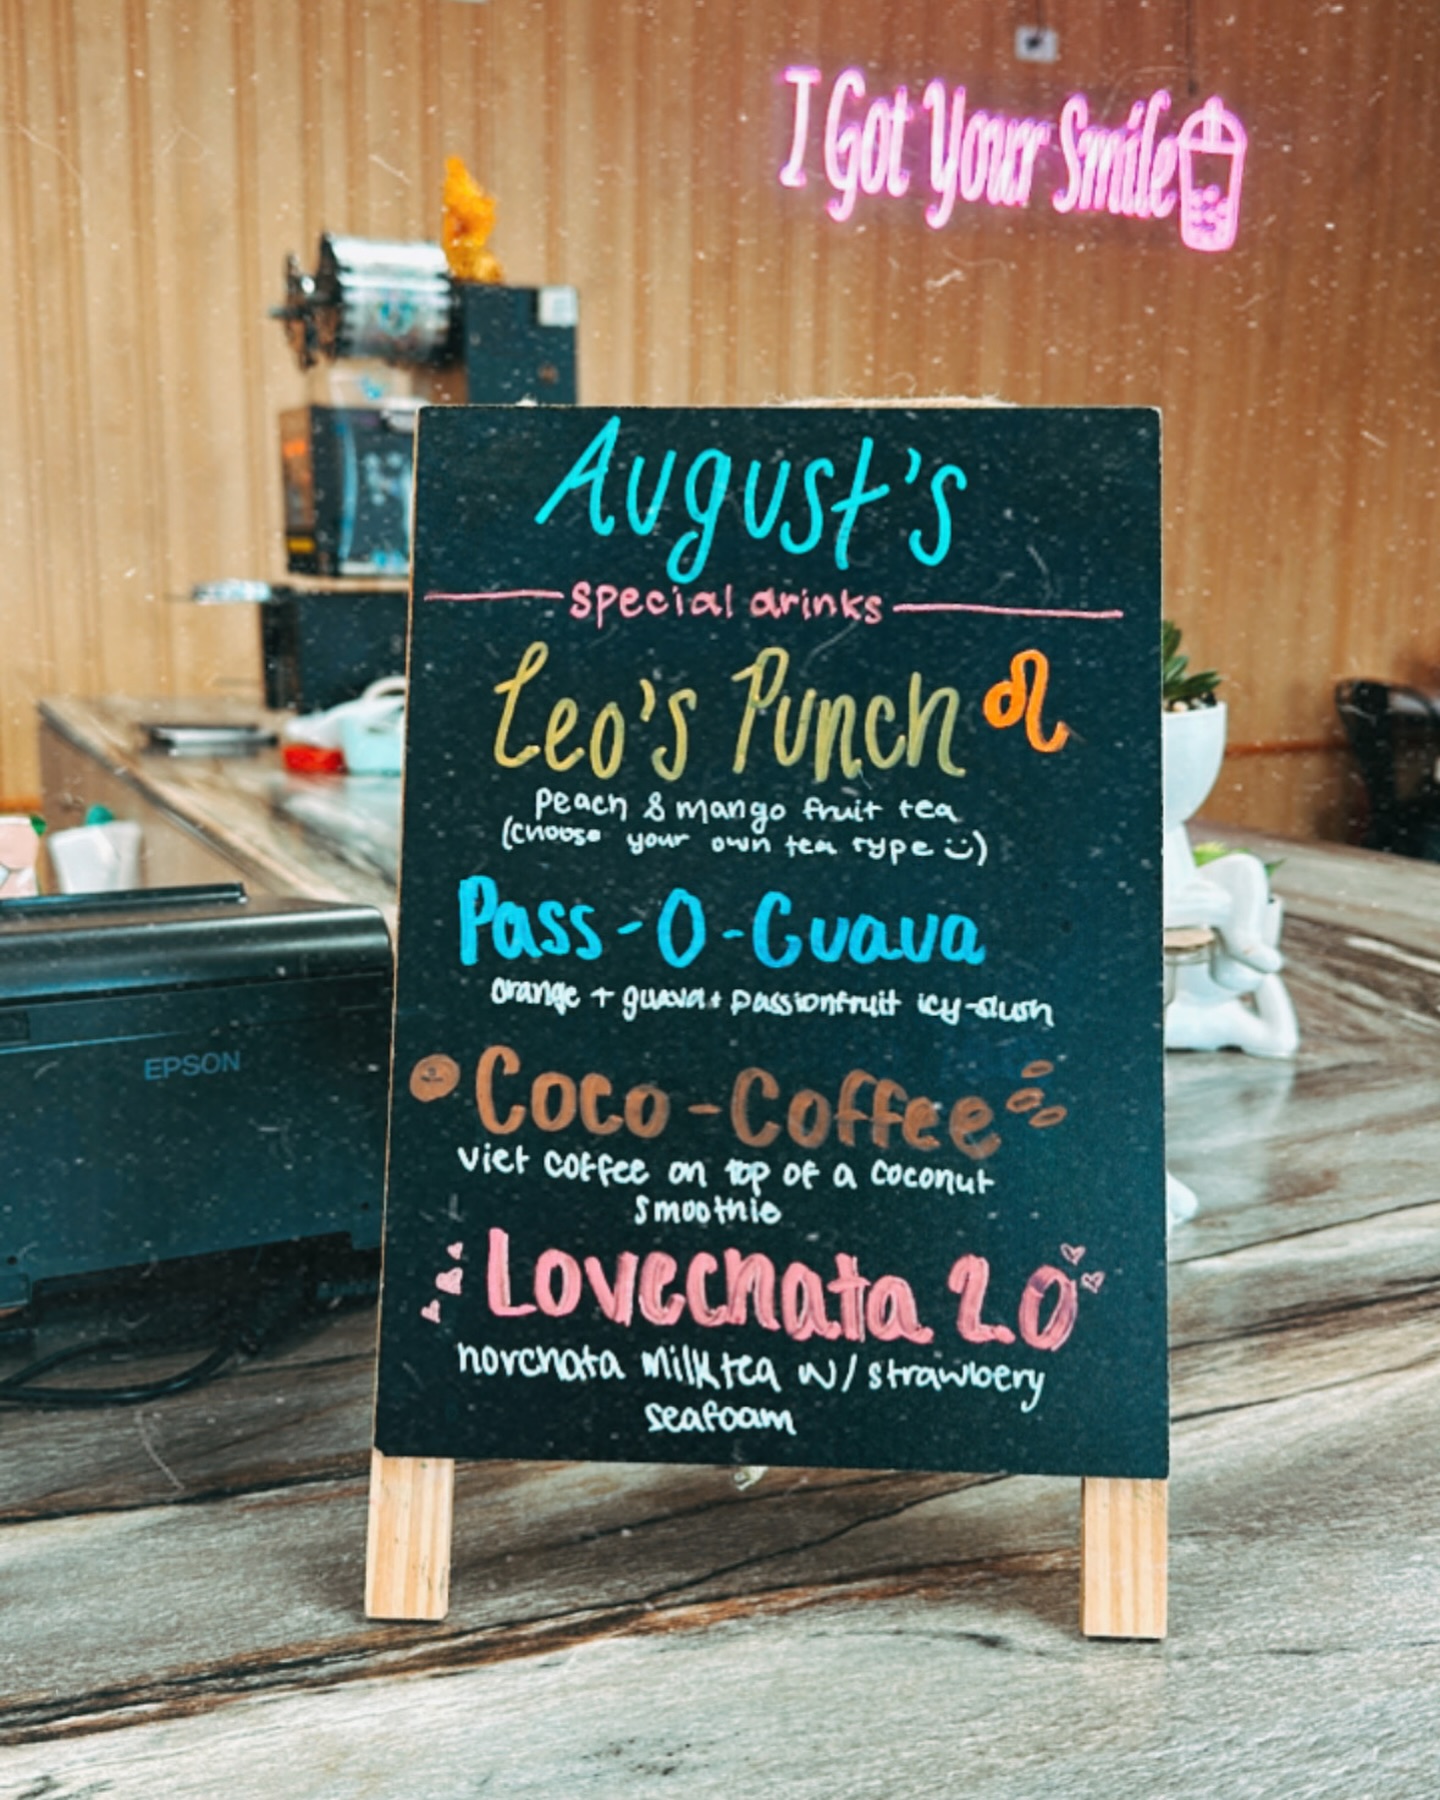 I Got Your Smile
August's
special drinks
Leo's Punch
peach & mango fruit tea
(choose your own tea type)
Pass-O-Guava
orange + guava + passionfruit icy-slush
EPSON
Coco-Coffee
viet coffee on top of a coconut
smoothie
Lovechata 2.0
horchata milk tea w/ strawbery
seafoam